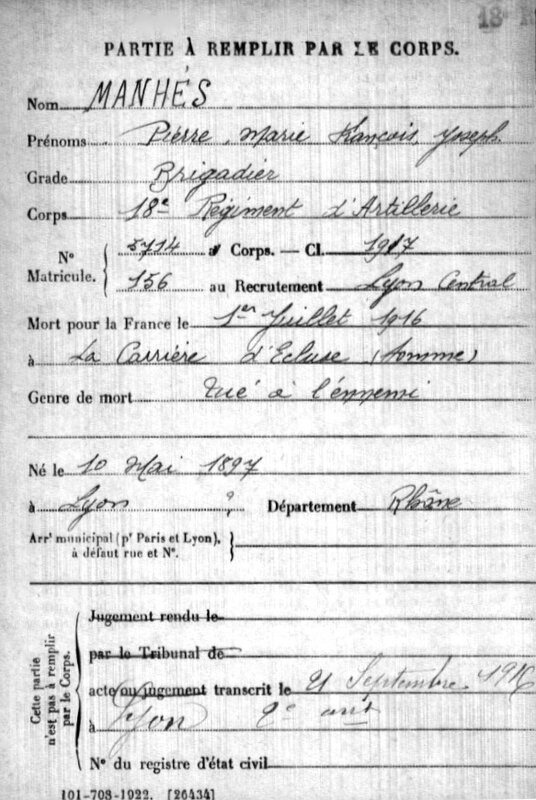 18e R
PARTIE À REMPLIR PAR LE CORPS.
Nom MANHÉS
Prénoms Pierre, Marie François, Joseph
Grade Brigadier
Corps 18e Régiment d'Artillerie
N° Matricule. { 5714 au Corps. — Cl. 1917
156 au Recrutement Lyon Central
Mort pour la France le 1er Juillet 1916
à La Carrière d'Ecluse (Somme)
Genre de mort Tué à l'énnemi
Né le 10 Mai 1897
à Lyon Département Rhône
Arrt municipal (pr Paris et Lyon),
à défaut rue et N°. }
Cette partie n'est pas à remplir par le Corps.
Jugement rendu le
par le Tribunal de
acte ou jugement transcrit le 21 Septembre 1916
à Lyon 2e arrt
N° du registre d'état civil
101-708-1922. [26434]